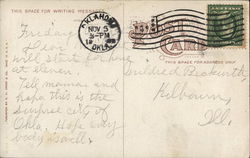 THIS SPACE FOR WRITING MESSAGES
OKLAHOMA
NOV 5
3-PM
OKLA.
CARD
THIS SPACE FOR ADDRESS ONLY
Friday
Dear
will start for home
at eleven.
Tell mama and
papa this is the
surprise city of
Okla. Hope every
body is well.
Mildred
Kilbourn,
Ill.